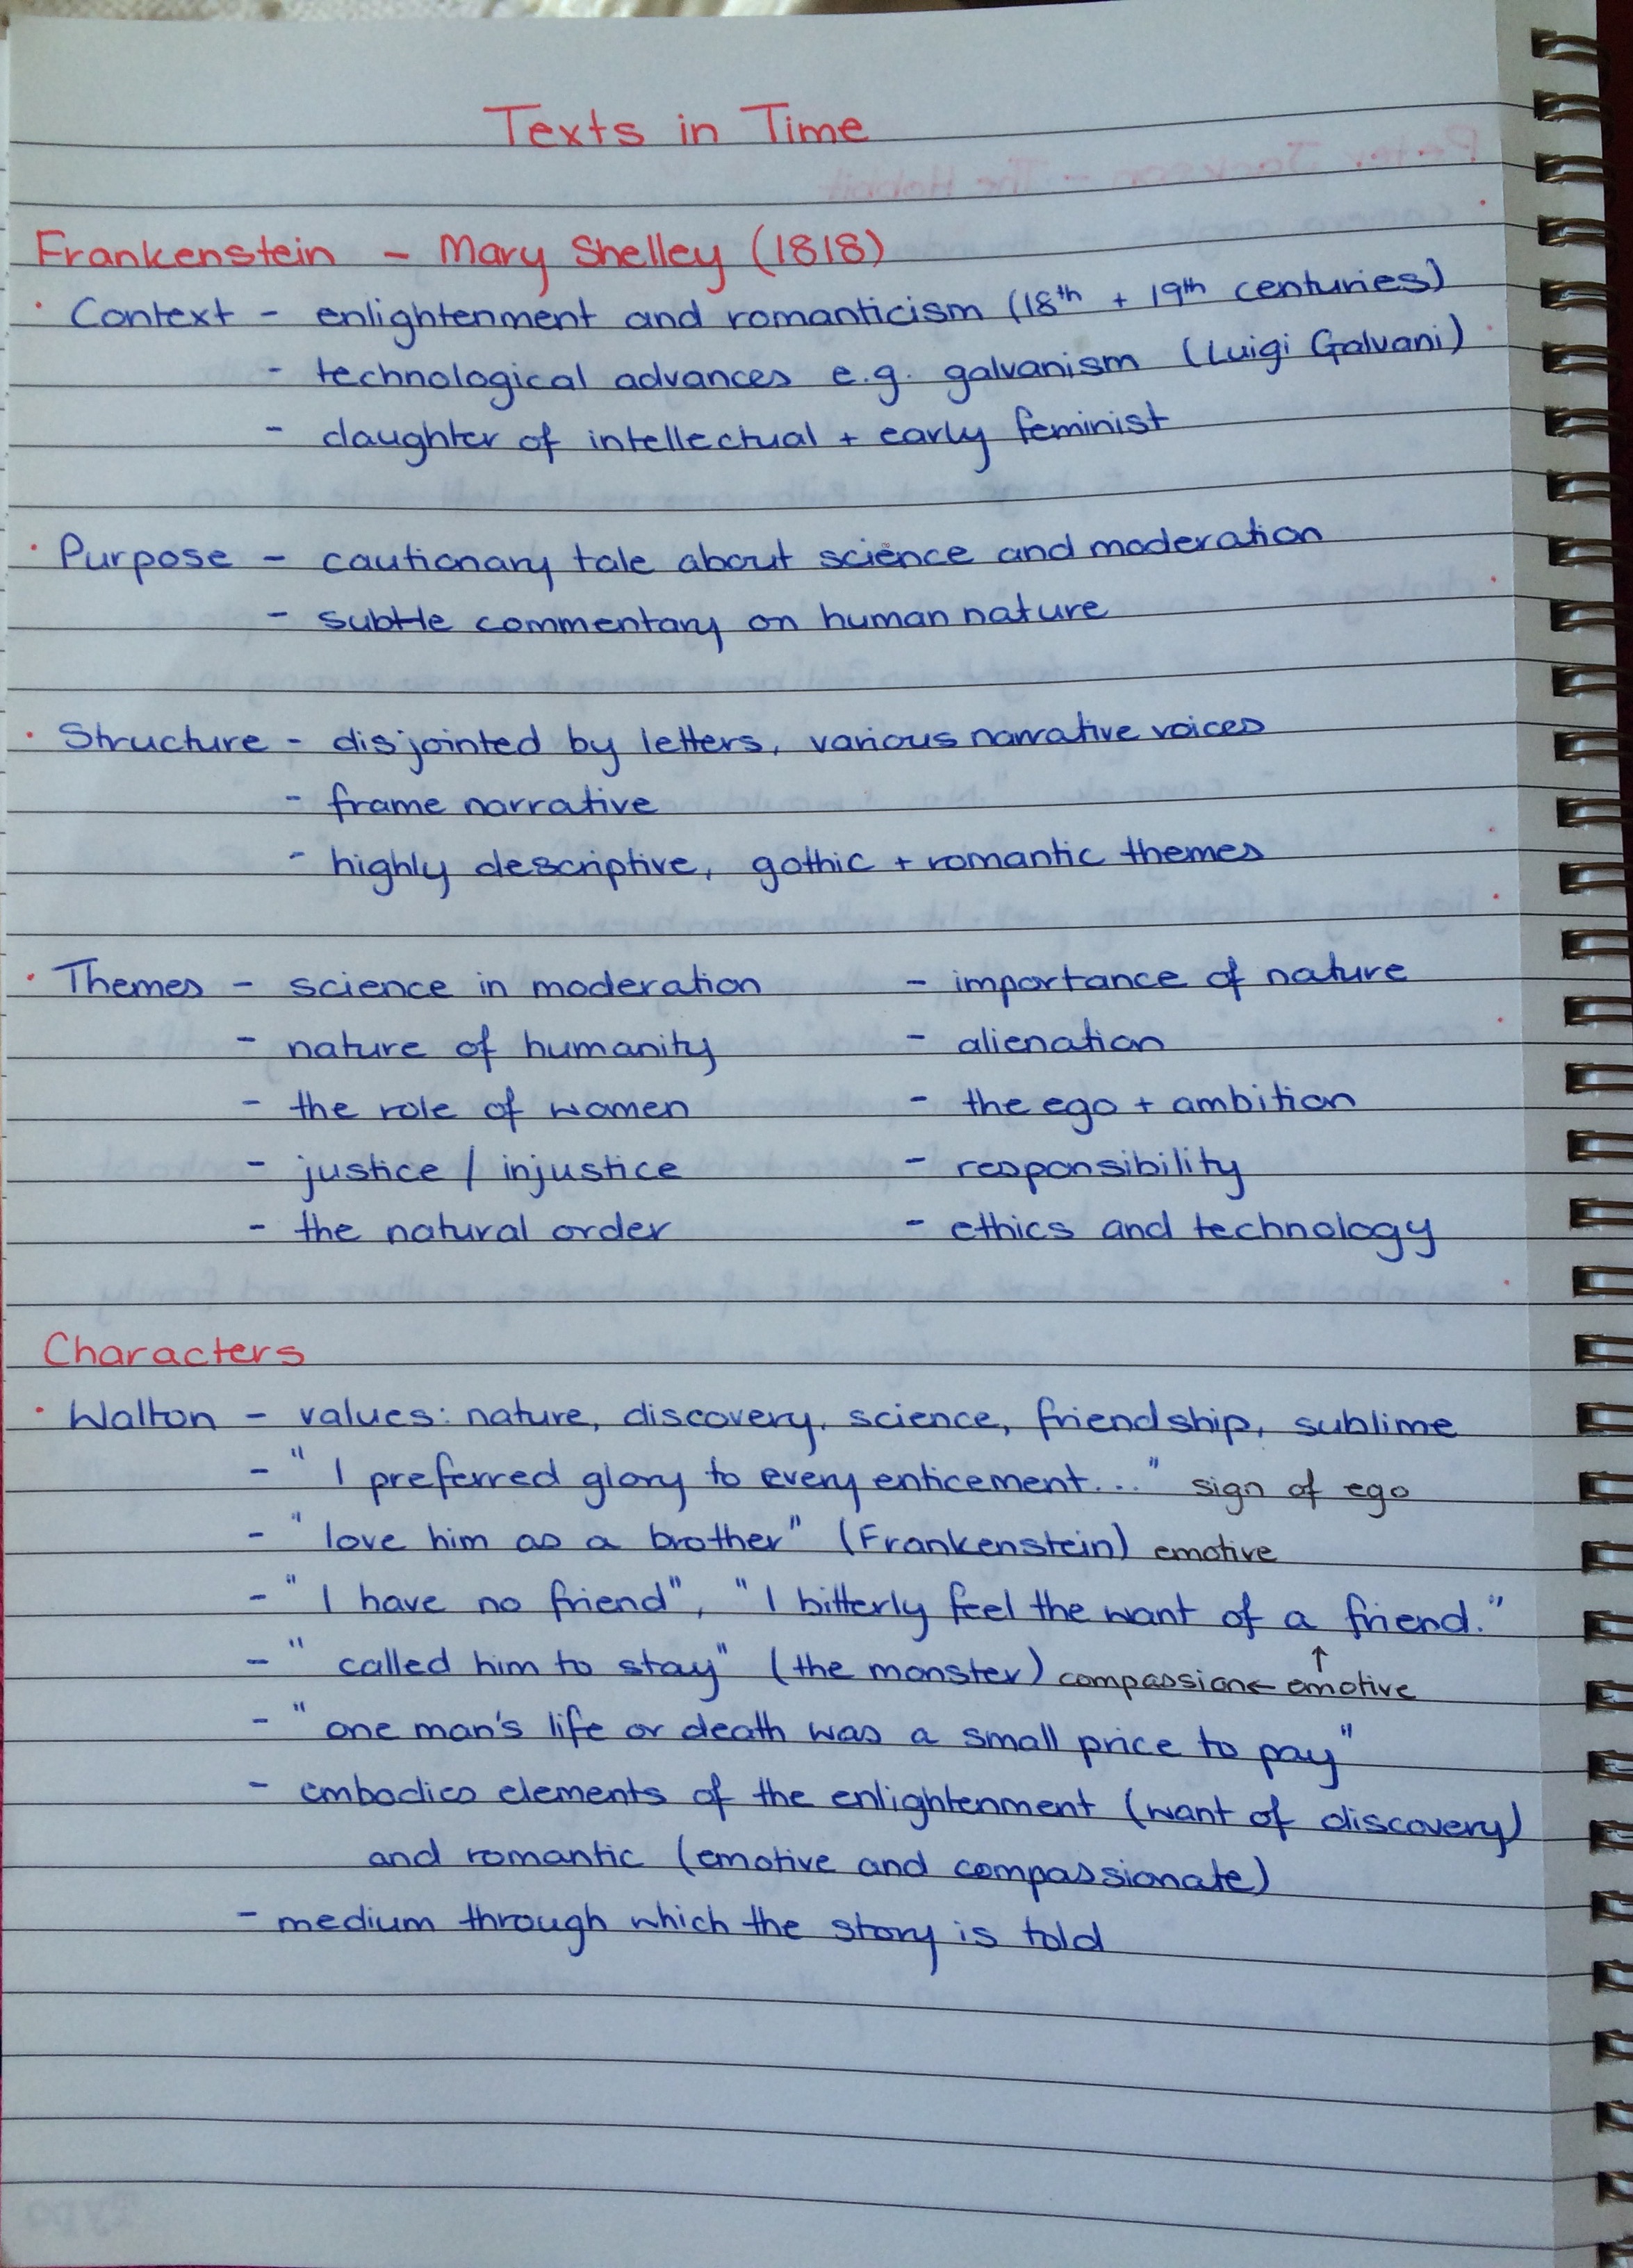 Texts in Time
Frankenstein - Mary Shelley (1818)
· Context - enlightenment and romanticism (18th + 19th centuries)
- technological advances e.g. galvanism (Luigi Galvani)
- daughter of intellectual + early feminist
· Purpose - cautionary tale about science and moderation
- subtle commentary on human nature
· Structure - disjointed by letters, various narrative voices
- frame narrative
- highly descriptive, gothic + romantic themes
· Themes - science in moderation - importance of nature
- nature of humanity - alienation
- the role of women - the ego + ambition
- justice / injustice - responsibility
- the natural order - ethics and technology
Characters
· Walton - values: nature, discovery, science, friendship, sublime
- "I preferred glory to every enticement..." sign of ego
- "love him as a brother" (Frankenstein) emotive
- "I have no friend", "I bitterly feel the want of a friend."
- "called him to stay" (the monster) compassion ← emotive ↑
- "one man's life or death was a small price to pay"
- embodies elements of the enlightenment (want of discovery)
and romantic (emotive and compassionate)
- medium through which the story is told